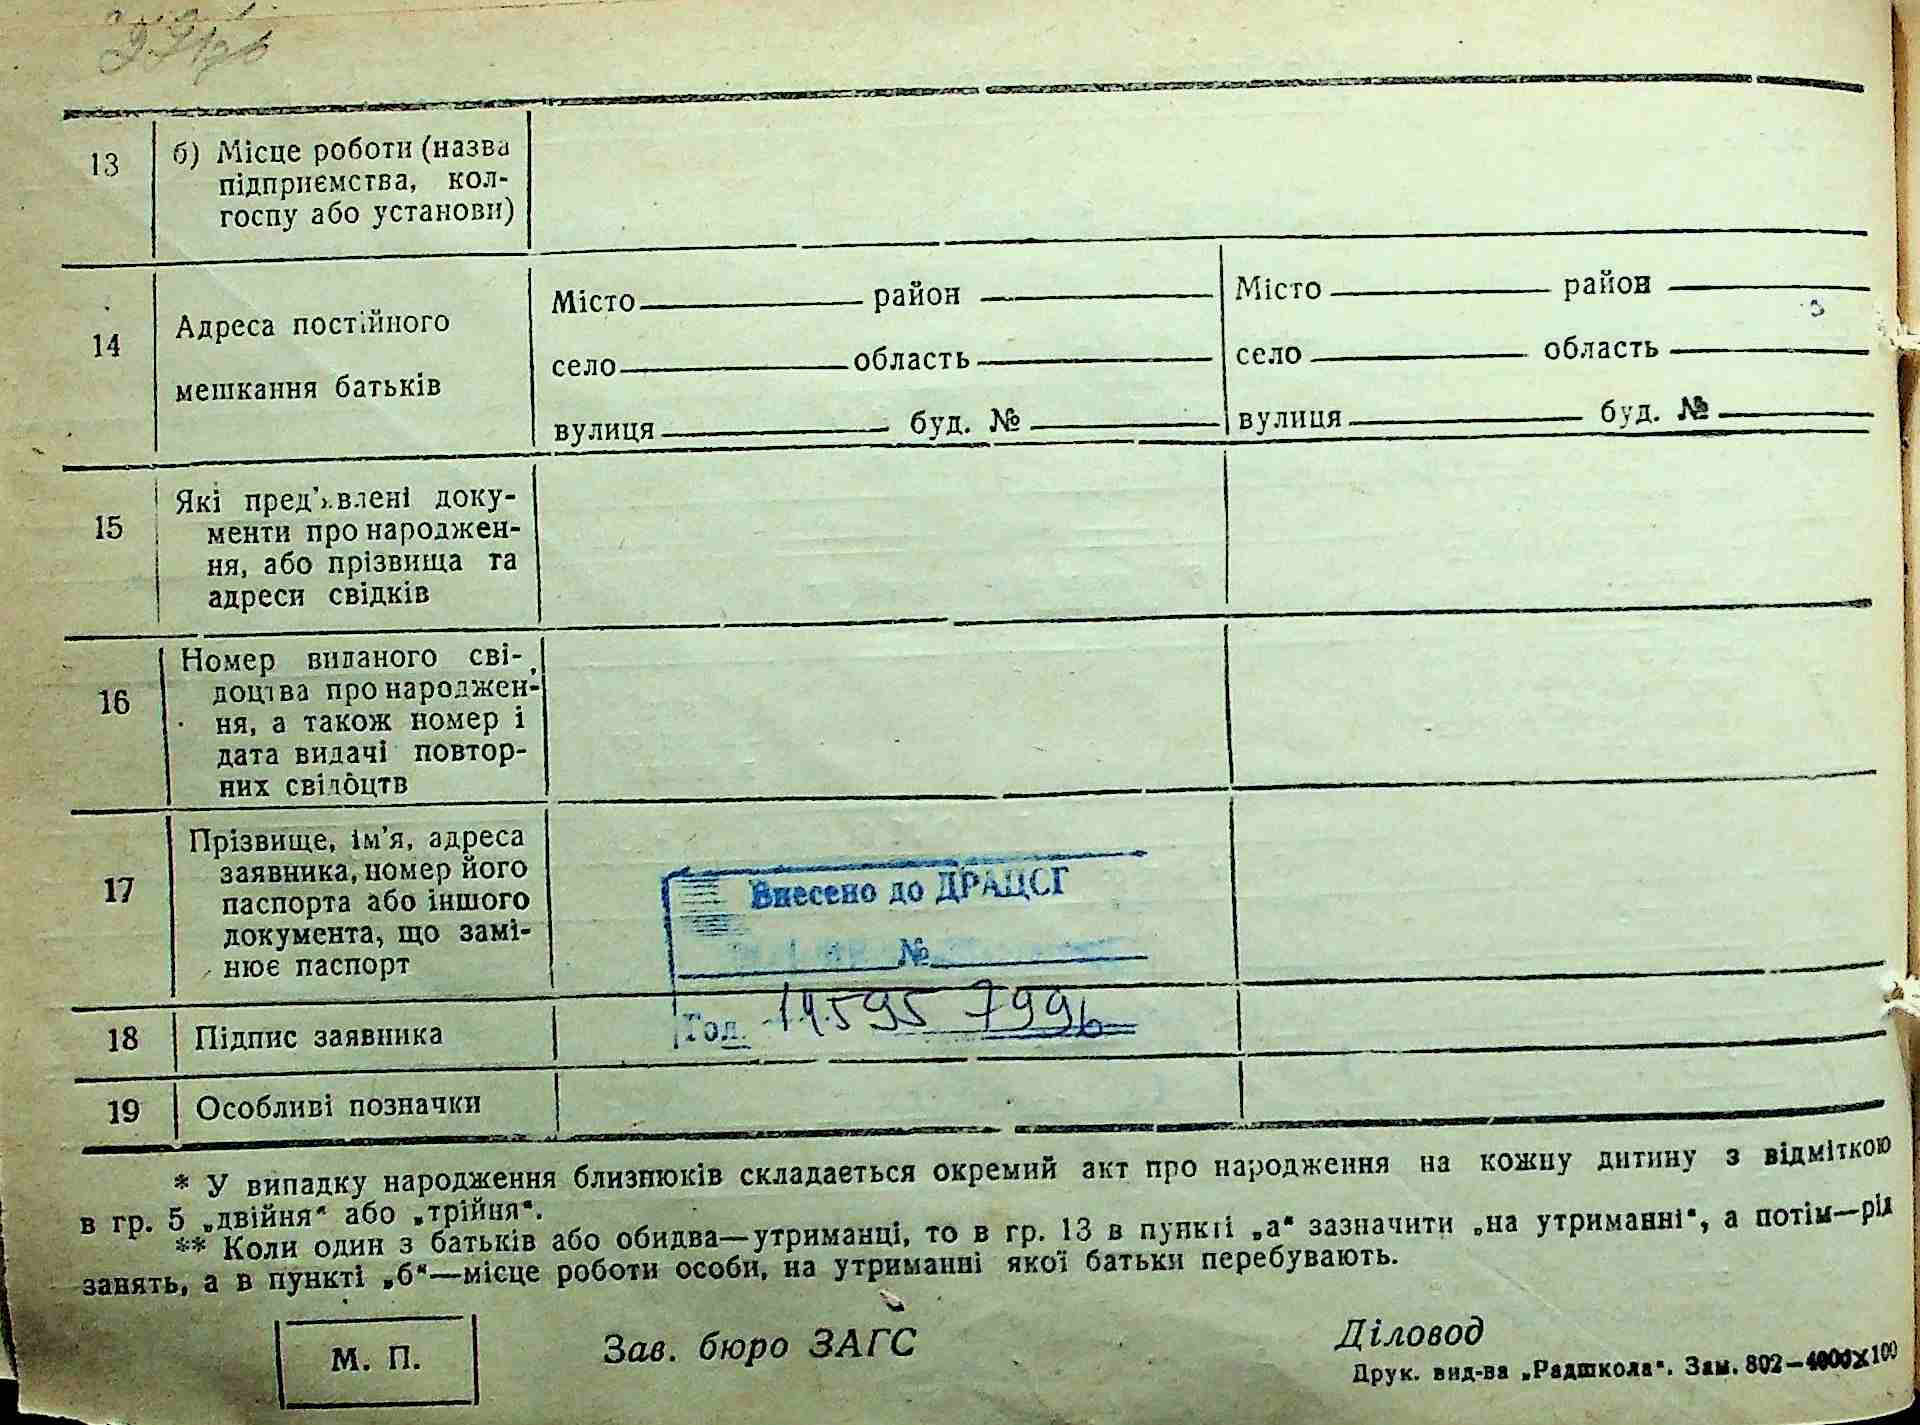 13
б) Місце роботи (назва
підприємства, кол-
госпу або установи)
14
Адреса постійного
мешкання батьків
Місто район
село область
вулиця буд. №
Місто район
село область
вулиця буд. №
15
Які пред'явлені доку-
менти про народжен-
ня, або прізвища та
адреси свідків
16
Номер виданого сві-
доцтва про народжен-
ня, а також номер і
дата видачі повтор-
них свідоцтв
17
Прізвище, ім'я, адреса
заявника, номер його
паспорта або іншого
документа, що замі-
нює паспорт
Внесено до ДРАЦСГ
№
18
Підпис заявника
Гол.
19
Особливі позначки
* У випадку народження близнюків складається окремий акт про народження на кожну дитину з відміткою
в гр. 5 „двійня“ або „трійня“.
** Коли один з батьків або обидва—утриманці, то в гр. 13 в пункті „а“ зазначити „на утриманні“, а потім—рід
занять, а в пункті „б“—місце роботи особи, на утриманні якої батьки перебувають.
М. П.
Зав. бюро ЗАГС
Діловод
Друк. вид-ва „Радшкола“. Зам. 802—4000X100